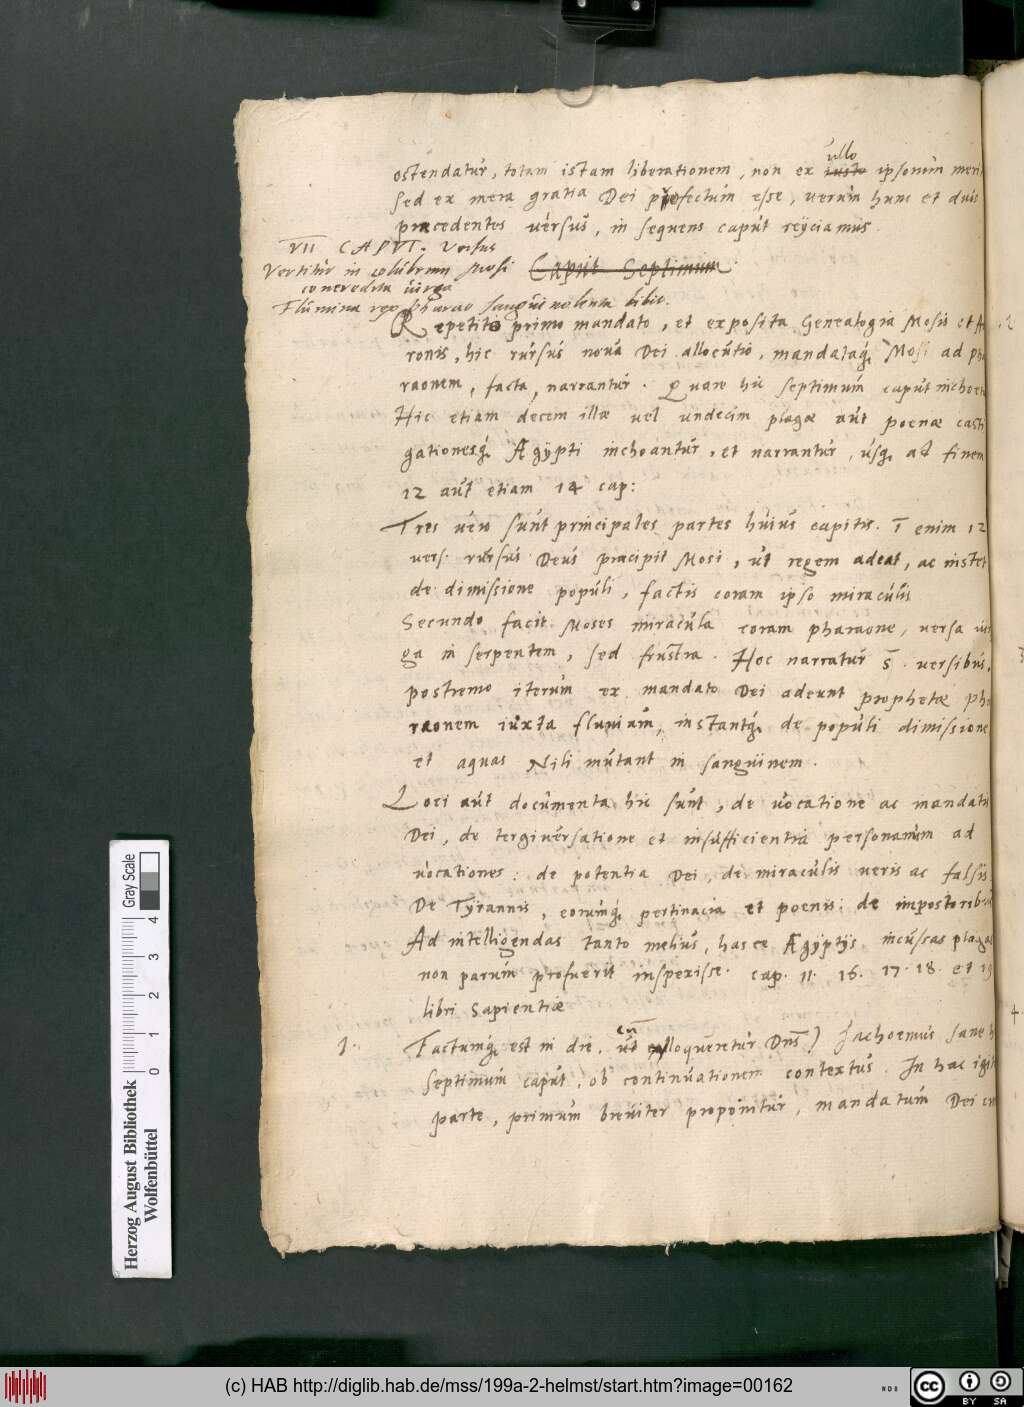 ullo
ostendatur, totam istam liberationem, non ex iusto ipsorum meri
sed ex mera gratia Dei profectum esse, verum hunc et duos
praecedentes versus, in sequens caput reijciamus.
VII CAPVT. Versus
Vertitur in colubrum Mosi Caput Septimum.
concredita virga
Flumina rex Pharao sanguinolenta bibit.
Repetito primo mandato, et exposita Genealogia Mosis et A
ronis, hic rursus nova Dei allocutio, mandataq; Mosi ad pha
raonem, facta, narrantur. Quare hic septimum caput inchoet
Hic etiam decem illae vel undecim plagae aut poenae casti
gationesq; Ægypti inchoantur, et narrantur, usq; ad finem
12 aut etiam 14 cap:
Tres vero sunt principales partes huius capitis. I enim 12
vers. rursus Deus praecipit Mosi, ut regem adeat, ac instet
de dimissione populi, factis coram ipso miraculis
Secundo facit Moses miracula coram pharaone, versa vir
ga in serpentem, sed frustra. Hoc narratur 5. versibus.
postremo iterum ex mandato Dei adeunt prophetae pha
raonem iuxta fluvium, instantq; de populi dimissione
et aquas Nili mutant in sanguinem.
Loci aut documenta hic sunt, de vocatione ac mandatis
Dei, de tergiversatione et insufficientia personarum ad
vocationes: de potentia Dei, de miraculis veris ac falsis
De Tyrannis, eorumq; pertinacia et poenis: de impostoribus
Ad intelligendas tanto melius, hasce Ægyptijs incussas plagas
non parum profuerit inspexisse. cap. 11. 16. 17. 18. et 19
libri Sapientiae
cū
1. Factumq; est in die, ut alloqueretur Dns) Inchoemus sane h
septimum caput, ob continuationem contextus. In hac igit
parte, primum breviter proponitur, mandatum Dei cu
Herzog August Bibliothek
Wolfenbüttel
0 1 2 3 4
Gray Scale
(c) HAB http://diglib.hab.de/mss/199a-2-helmst/start.htm?image=00162
cc BY SA